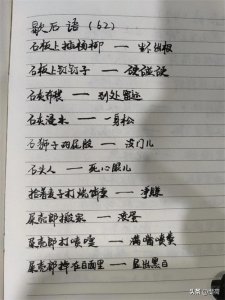 歇后语（62）
石板上插杨柳 — 生不出根
石板上钉钉子 — 硬碰硬
石灰布袋 — 到处留迹
石灰浸水 — 一身松
石狮子的屁股 — 没门儿
石头人 — 死心眼儿
拾着麦子打烧饼卖 — 净赚
屎壳郎搬家 — 滚蛋
屎壳郎打喷嚏 — 满嘴喷粪
屎壳郎掉在白面里 — 显出黑白
头条